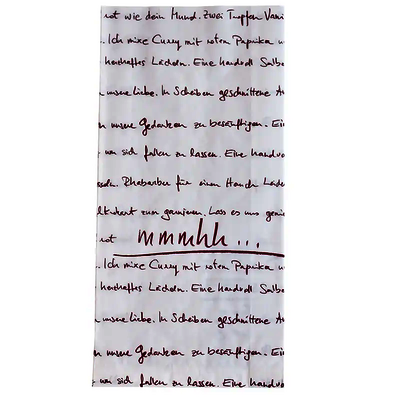 rot wie dein Mund. Zwei Tropfen Vani
. Ich mixe Curry mit rotem Paprika u
herzhaftes Lächeln. Eine handvoll Salbe
unsere Liebe. In Scheiben geschnittene A
n unsere Gedanken zu besänftigen. Ei
um sich fallen zu lassen. Eine handvo
Rhabarber für einen Hauch Leide
zum garnieren. Lass es uns genie
rot mmmhh...
. Ich mixe Curry mit rotem Paprika u
herzhaftes Lächeln. Eine handvoll Salbe
unsere Liebe. In Scheiben geschnittene A
n unsere Gedanken zu besänftigen. Ei
um sich fallen zu lassen. Eine handvo